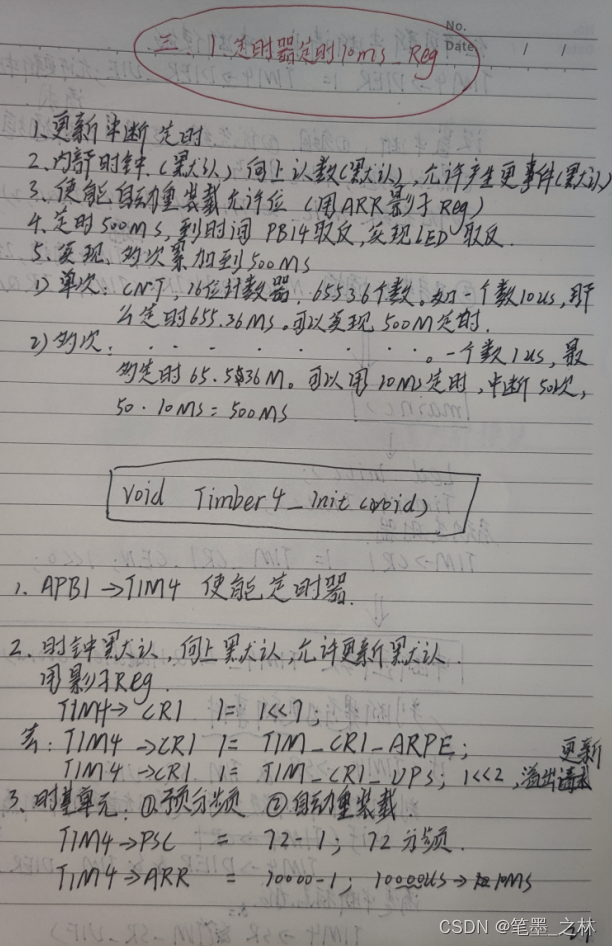 No.
Date / /
三 1.定时器定时10ms_Reg
1.更新中断定时
2.内部时钟.(默认)向上计数(默认),允许产生更事件(默认)
3、使能自动重装载允许位 (用ARR影子Reg)
4.定时500MS,到时间PB14取反,实现LED取反.
5.实现、多次累加到500MS
1)单次:CNT,16位计数器,65536个数。如一个数10us,那
么定时655.36MS。可以实现500M定时.
2)多次:. . . . . . . . 。一个数1us,最
多定时65.536M。可以用10MS定时,中断50次,
50·10MS=500MS
void Timber4_Init(void)
1. APB1→TIM4 使能定时器.
2、时钟默认,向上默认,允许更新默认.
用影子Reg.
TIM4→CR1 |= 1<<7;
TIM4→CR1 |= TIM_CR1_ARPE; 更新
TIM4→CR1 |= TIM_CR1_UPS; 1<<2,溢出请求
3、时基单元:①预分频 ②自动重装载.
TIM4→PSC = 72-1; 72分频.
TIM4→ARR = 10000-1; 10000us→10MS
CSDN @笔墨_之林